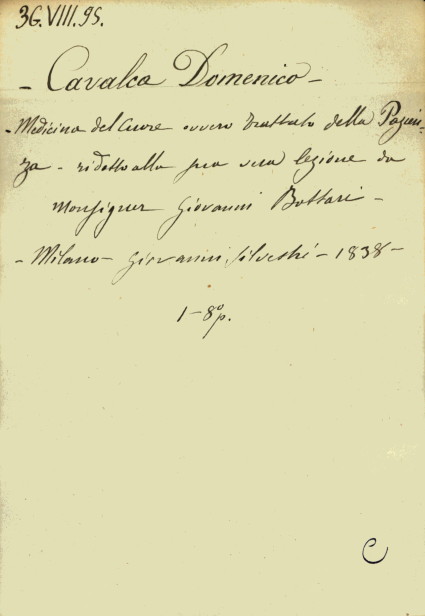 36.VIII.95.
- Cavalca Domenico -
- Medicina del Cuore ovvero Trattato della Pazien-
za - ridotto alla sua vera lezione da
Monsignor Giovanni Bottari -
- Milano - Giovanni Silvestri - 1838 -
1-8°p.
C